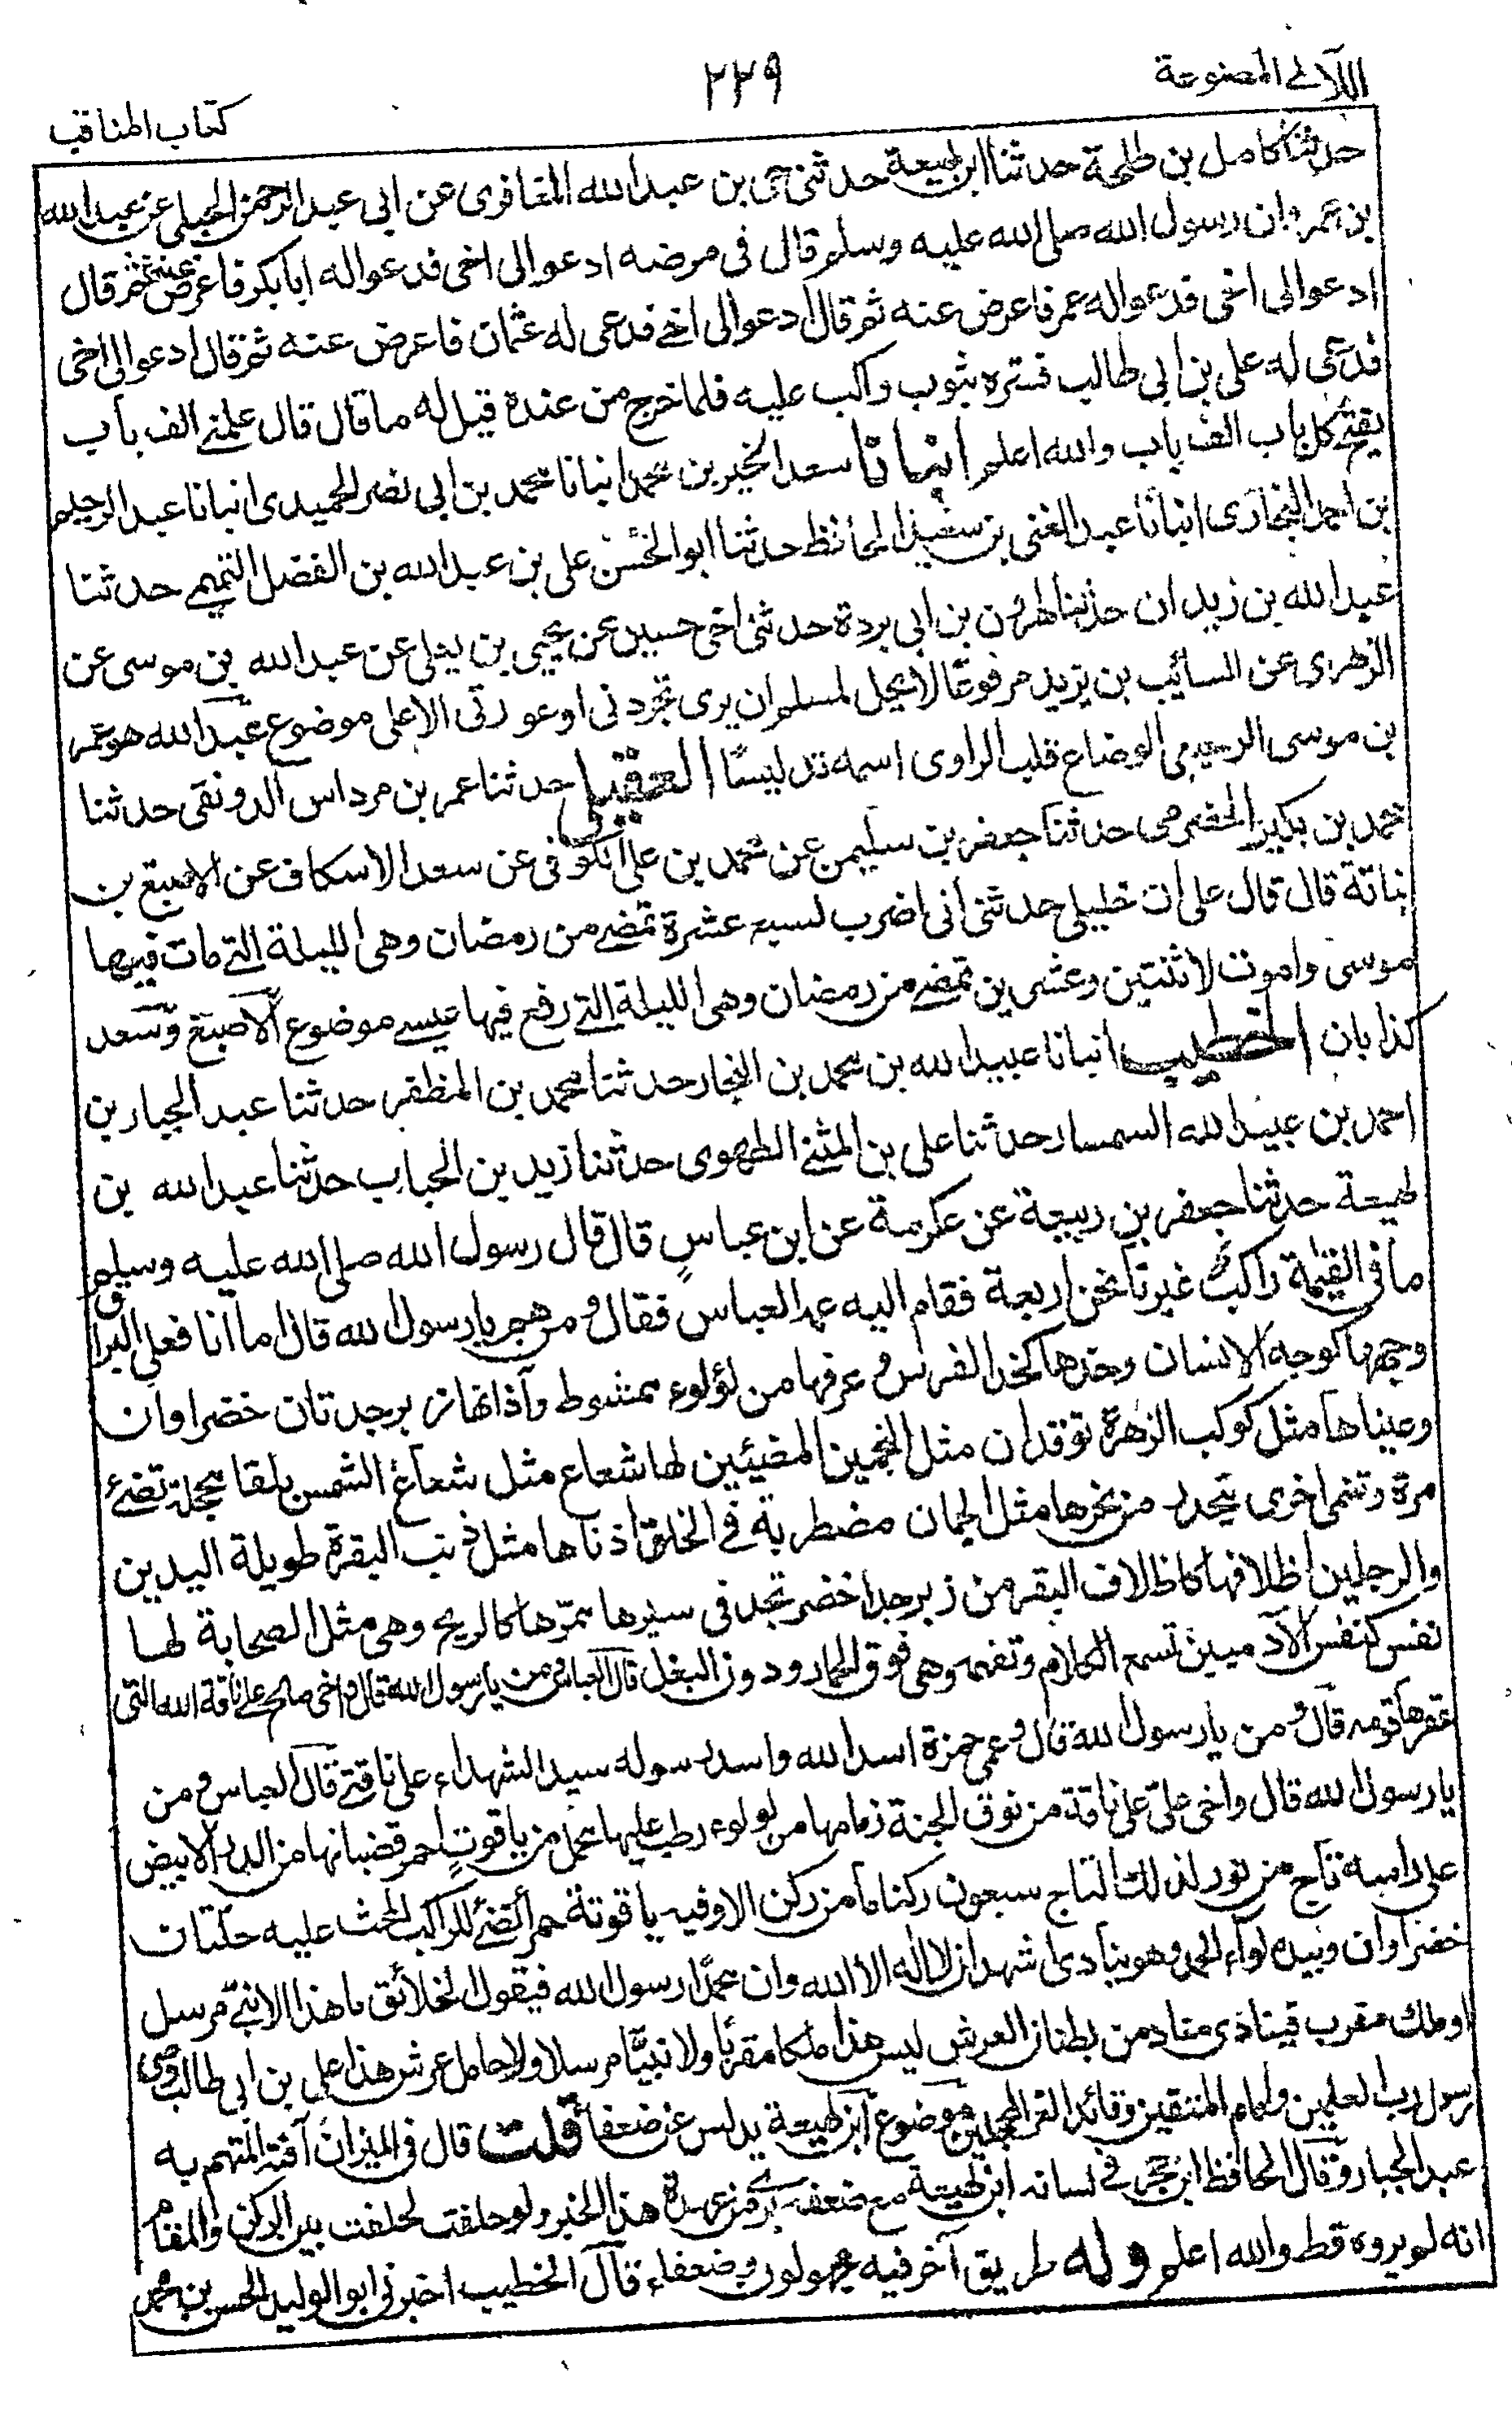 اللآلى المصنوعة
٢٢٩
كتاب المناقب
حدثنا كامل بن طلحة حدثنا ابن لهيعة حدثنى حى بن عبدالله المغافرى عن ابى عبدالرحمن الحبلى عن عبدالله
بن عمرو ان رسول الله صلى الله عليه وسلم قال فى مرضه ادعوا لى اخى فدعوا له ابابكر فاعرض عنه ثم قال
ادعوا لى اخى فدعوا له عمر فاعرض عنه ثم قال ادعوا لى اخى فدعى له عثمان فاعرض عنه ثم قال ادعوا لى اخى
فدعى له على بن ابى طالب فستره بثوب واكب عليه فلما خرج من عنده قيل له ما قال قال علمنى الف باب
يفتح كل باب الف باب والله اعلم انبانا سعد الخير بن محمد انبانا محمد بن ابى نصر الحميدى انبانا عبد الرحيم
بن احمد البخارى انبانا عبد الغنى بن سعيد الحافظ حدثنا ابوالحسن على بن عبدالله بن الفضل التميمى حدثنا
عبدالله بن زيدان حدثنا هرون بن ابى بردة حدثنى اخى حسين عن يحيى بن يعلى عن عبدالله بن موسى عن
الزهرى عن السائب بن يزيد مرفوعا لا يحل لمسلم ان يرى تجردنى او عورتى الا على موضوع عبدالله هو عمر
بن موسى الوجيهى الوضاع قلب الراوى اسمه تدليسًا العقيلى حدثنا عمر بن مرداس الدونقى حدثنا
محمد بن بكير الحضرمى حدثنا جعفر بن سليمن عن محمد بن على الكوفى عن سعد الاسكاف عن الاصبغ بن
نباتة قال قال على ان خليلى حدثنى انى اضرب لسبع عشرة تمضى من رمضان وهى الليلة التى مات فيها
موسى واموت لاثنتين وعشرين تمضى من رمضان وهى الليلة التى رفع فيها عيسى موضوع الاصبغ وسعد
كذابان الخطيب انبانا عبيدالله بن محمد بن النجار حدثنا محمد بن المظفر حدثنا عبد الجبار بن
احمد بن عبيدالله السمسار حدثنا على بن المثنى الطهوى حدثنا زيد بن الحباب حدثنا عبدالله بن
لهيعة حدثنا جعفر بن ربيعة عن عكرمة عن ابن عباس قال قال رسول الله صلى الله عليه وسلم
ما فى القيمة راكب غيرنا نحن اربعة فقام اليه عمه العباس فقال ومن هم يا رسول الله قال اما انا فعلى البراق
وجهها كوجه الانسان وخدها كخد الفرس وعرفها من لؤلوء ممشوط واذناها زبرجدتان خضراوان
وعيناها مثل كوكب الزهرة توقدان مثل النجمين المضيئين لها شعاع مثل شعاع الشمس بلقا محجلة تضئ
مرة وتنمى اخرى يتحدر من نحرها مثل الجمان مضطربة فى الخلق اذناها مثل ذنب البقرة طويلة اليدين
والرجلين اظلافها كاظلاف البقر من زبرجد اخضر تجد فى سيرها ممرها كالريح وهى مثل الصحابة لها
نفس كنفس الآدميين تسمع الكلام وتفهمه وهى فوق الحمار ودون البغل قال العباس ومن يا رسول الله قال واخى صالح على ناقة الله التى
عقرها قومه قال ومن يا رسول الله قال وعمى حمزة اسد الله واسد رسوله سيد الشهداء على ناقتى قال العباس ومن
يا رسول الله قال واخى على على ناقة من نوق الجنة زمامها من لولوء رطب عليها محمل من ياقوت احمر قضبانها من الدر الابيض
على راسه تاج من نور لذلك التاج سبعون ركنا ما من ركن الا وفيه ياقوتة حمرا تضئ للراكب المحث عليه حلتان
خضراوان وبيده لواء الحمد وهو ينادى اشهد ان لا اله الا الله وان محمدا رسول الله فيقول الخلائق ما هذا الا نبى مرسل
او ملك مقرب فينادى مناد من بطنان العرش ليس هذا ملكا مقربا ولا نبيا مرسلا ولا حامل عرش هذا على بن ابى طالب وصى
رسول رب العلمين وامام المتقين وقائد الغر المحجلين موضوع ابن لهيعة يدلس عن ضعفا قلت قال فى الميزان آفته المتهم به
عبدالجبار وقال الحافظ ابن حجر فى لسانه ابن لهيعة مع ضعفه برئ من عهدة هذا الخبر ولو حلفت لحلفت بين الركن والمقام
انه لم يروه قط والله اعلم وله طريق آخر فيه مجهولون وضعفاء قال الخطيب اخبرنى ابو الوليد الحسن بن محمد